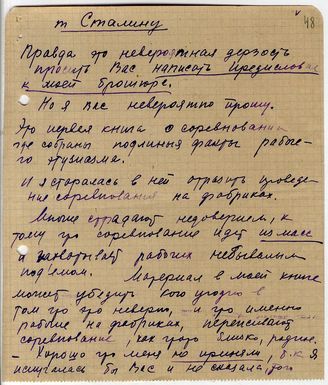 48
т Сталину
Правда это невероятная дерзость
просить Вас написать предисловие
к моей брошюре.
Но я Вас невероятно прошу.
Это первая книга о соревновании
где собраны подлинные факты рабоче-
го энтузиазма.
И я старалась в ней отразить
соревнования на фабриках.
Многие страдают недоверием, к
тому что соревнование идет из масс
и захватывает рабочих небывалым
подъемом. Материал в моей книге
может убедить кого угодно в
том что это неверно, и что именно
рабочие на фабриках,
соревнование, как что-то близко, родное.
- Хорошо что меня не приняли, т.к. я
Вас и не сказала того